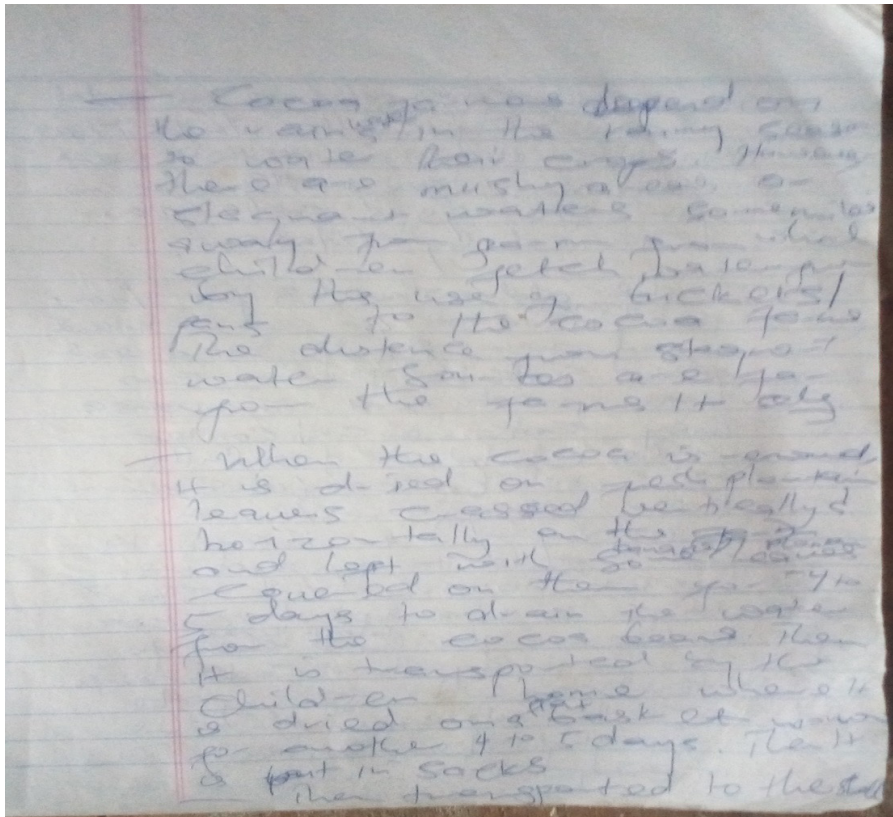 — Cocoa farmers depend on
the rains in the rainy season
to water their crops. However
there are mushy areas or
stegnant waters some miles
away from farm from which
children fetch water
by the use of buckets/
pans to the cocoa farms
The distence from stegnant
water sources are far
from the farms it
— When the cocoa is
It is dried on fresh plantain
leaves crossed vertically &
horizontally on the
and left with some leaves
covered on them for 4 to
5 days to drain the water
from the cocoa beans then
it is transported by the
children home where it
is dried on a flat basket woven
for another 4 to 5 days. Then it
is put in sacks
— Then transported to the